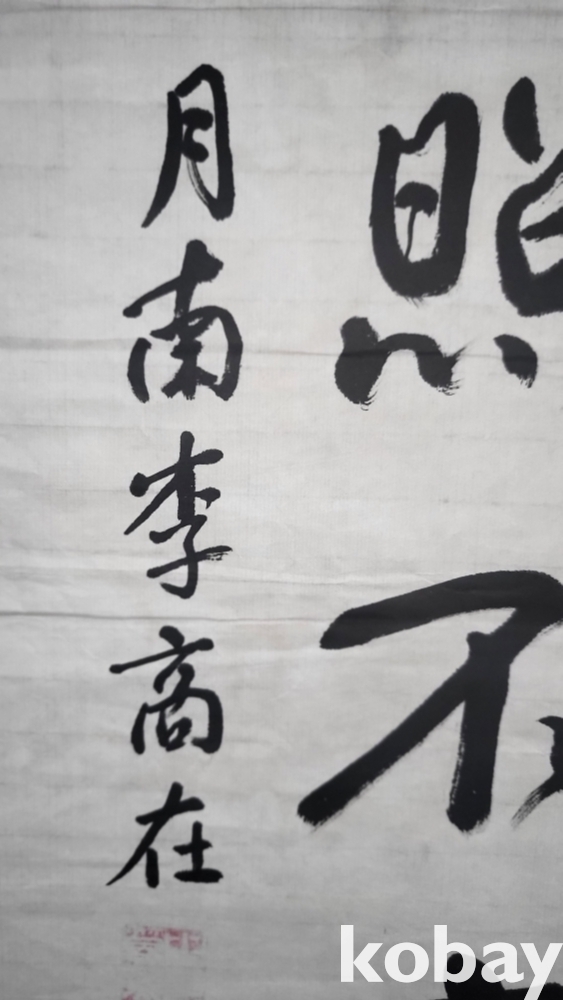 照不
月南李商在
kobay